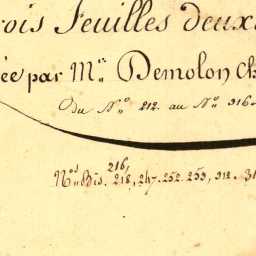 rois Feuilles deux
ée par Mr. Demolon Ch
Du No. 212. au No. 316.
216,
Nos. Bis. 218, 247. 252. 255, 312. 31